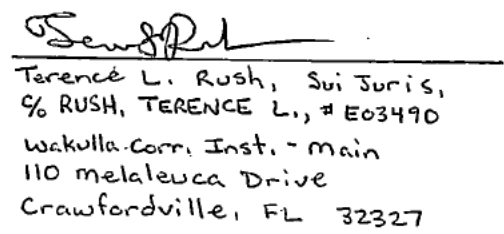 Terence L. Rush, Sui Juris,
c/o RUSH, TERENCE L., # E03490
Wakulla Corr. Inst. - main
110 melaleuca Drive
Crawfordville, FL 32327